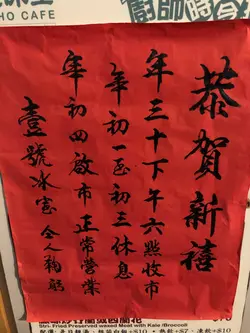 HO CAFE
廚師時
恭賀新禧
年三十下午六點收市
年初一至初三休息
年初四啟市正常營業
壹號冰室 仝人鞠躬
Stir- Fried Preserved waxed Meat with Kale /Broccoli
熱飲+$7 凍飲+$10